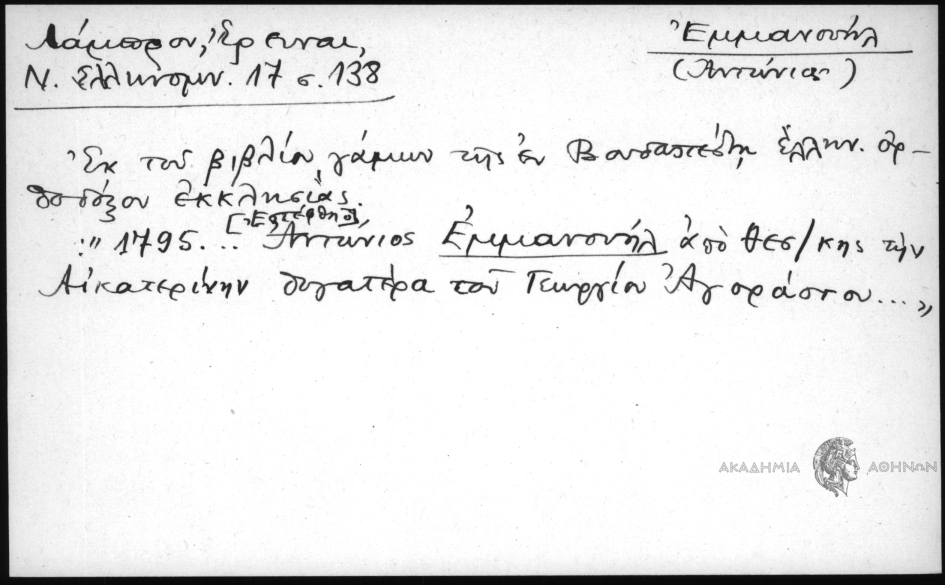 Λάμπρου, Ἔρευναι,
Ν. Ἑλληνομν. 17 σ. 138
Ἐμμανουήλ
(Ἀντώνιος)
Ἐκ τοῦ βιβλίου γάμων τῆς ἐν Βουδαπέστῃ ἑλλην. ὀρ-
θοδόξου ἐκκλησίας.
[Ἐστέφθη],
:" 1795... Ἀντώνιος Ἐμμανουήλ ἀπὸ Θεσ/κης τὴν
Αἰκατερίνην θυγατέρα τοῦ Γεωργίου Ἀγοράστου..."
ΑΚΑΔΗΜΙΑ ΑΘΗΝΩΝ